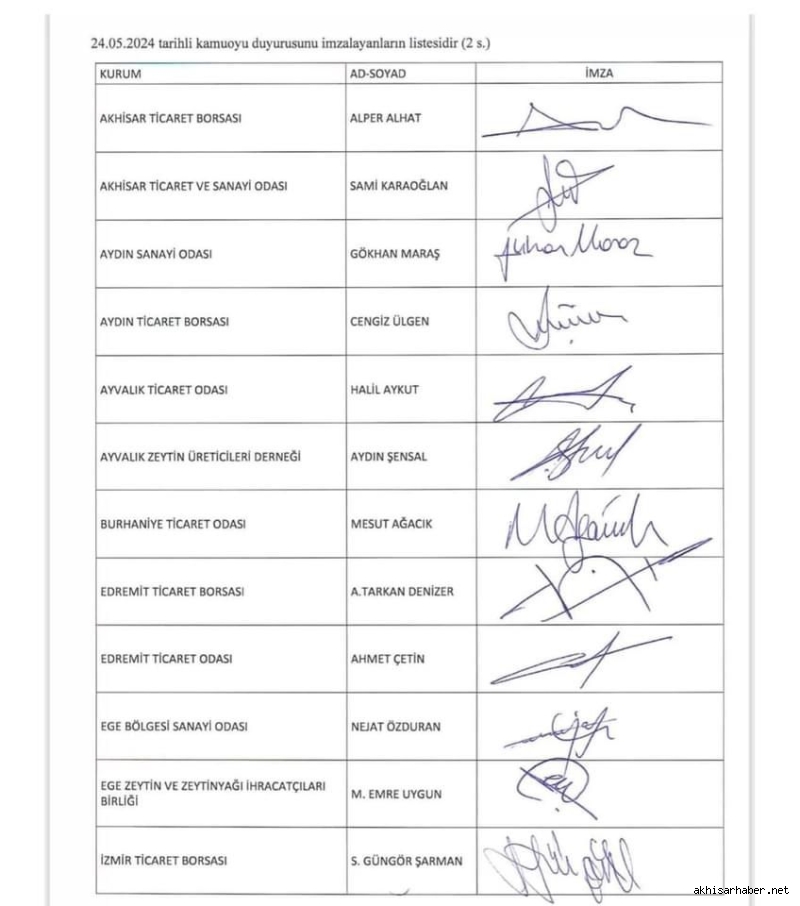 24.05.2024 tarihli kamuoyu duyurusunu imzalayanların listesidir (2 s.)
KURUM AD-SOYAD İMZA
AKHİSAR TİCARET BORSASI ALPER ALHAT
AKHİSAR TİCARET VE SANAYİ ODASI SAMİ KARAOĞLAN
AYDIN SANAYİ ODASI GÖKHAN MARAŞ
AYDIN TİCARET BORSASI CENGİZ ÜLGEN
AYVALIK TİCARET ODASI HALİL AYKUT
AYVALIK ZEYTİN ÜRETİCİLERİ DERNEĞİ AYDIN ŞENSAL
BURHANİYE TİCARET ODASI MESUT AĞACIK
EDREMİT TİCARET BORSASI A.TARKAN DENİZER
EDREMİT TİCARET ODASI AHMET ÇETİN
EGE BÖLGESİ SANAYİ ODASI NEJAT ÖZDURAN
EGE ZEYTİN VE ZEYTİNYAĞI İHRACATÇILARI
BİRLİĞİ M. EMRE UYGUN
İZMİR TİCARET BORSASI S. GÜNGÖR ŞARMAN
akhisarhaber.net